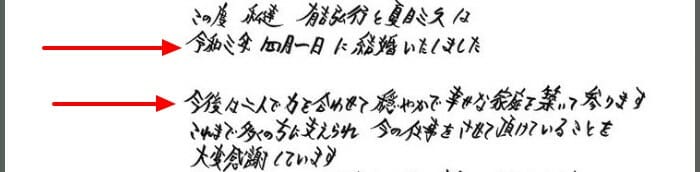 この度 私達 有吉弘行と夏目三久は
令和三年 四月一日 に 結婚いたしました
今後は二人で力を合わせて 穏やかで幸せな家庭を築いて参ります
これまで多くの方に支えられ 今の仕事をさせて頂けていることを
大変感謝しています